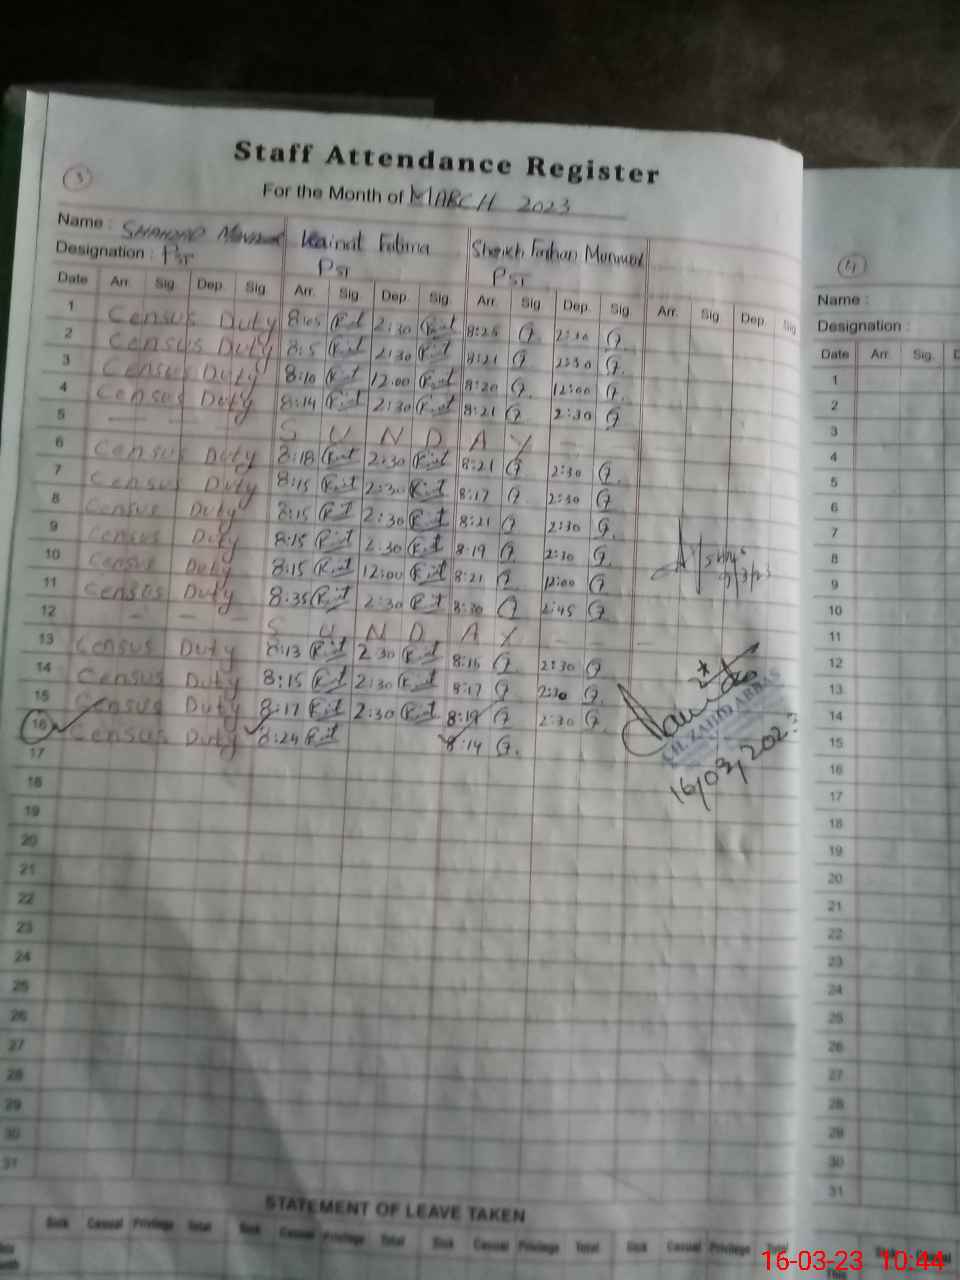 Staff Attendance Register
3
For the Month of MARCH 2023
Name : SHAHZAD Kainat Fatima Sheikh Farhan
Designation : PST PST PST
Date Arr. Sig. Dep. Sig. Arr. Sig. Dep. Sig. Arr. Sig. Dep. Sig. Arr. Sig. Dep. Sig.
1 Census Duty 8:05 2:30 8:25 2:30
2 Census Duty 8:5 2:30 8:21 2:30
3 Census Duty 8:10 12:00 8:20 12:00
4 Census Duty 8:14 2:30 8:21 2:30
5 - - - - S U N D A Y -
6 Census Duty 8:18 2:30 8:21 2:30
7 Census Duty 8:15 2:30 8:17 2:30
8 Census Duty 8:15 2:30 8:21 2:30
9 Census Duty 8:15 2:30 8:19 2:30
10 Census Duty 8:15 12:00 8:21 12:00
11 Census Duty 8:35 2:30 8:30 2:45
12 - - - S U N D A Y
13 Census Duty 8:13 2:30 8:15 2:30
14 Census Duty 8:15 2:30 8:17 2:30
15 Census Duty 8:17 2:30 8:19 2:30
16 Census Duty 8:24 8:14
17
18
19
20
21
22
23
24
25
26
27
28
29
30
31
CH. ZAHID ABBAS
16/03/2023
STATEMENT OF LEAVE TAKEN
Sick Casual Privilege Total Sick Casual Privilege Total Sick Casual Privilege Total Sick Casual Privilege Total
4
Name :
Designation :
Date Arr. Sig.
1
2
3
4
5
6
7
8
9
10
11
12
13
14
15
16
17
18
19
20
21
22
23
24
25
26
27
28
29
30
31
Sick Casual
16-03-23 10:44